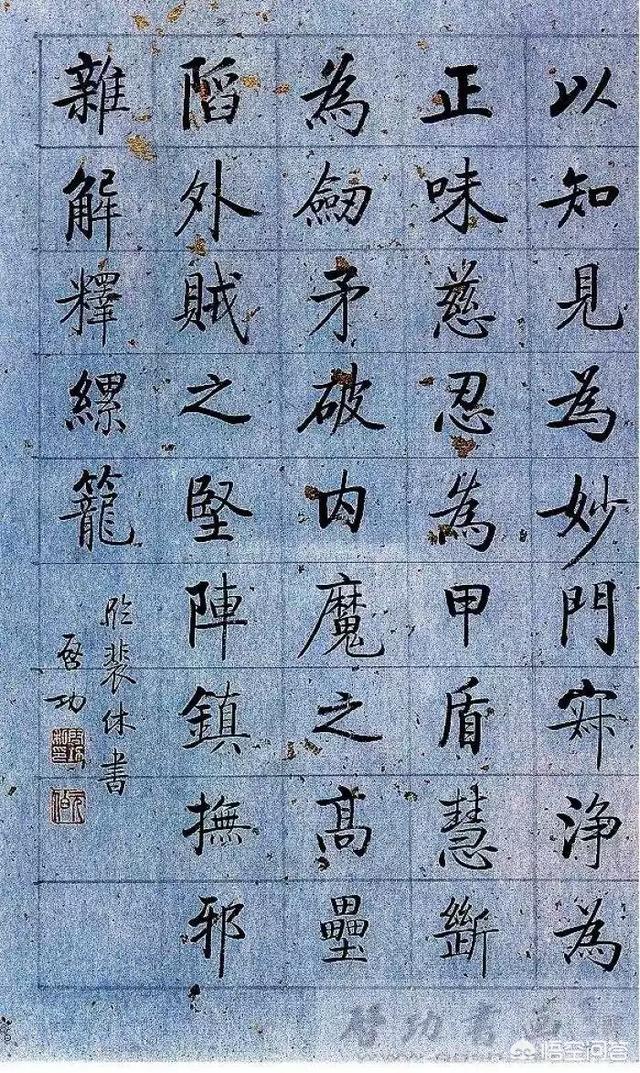 以知見為妙門㝥淨為
正味慈忍為甲盾慧斷
為劒矛破内魔之高壘
陷外賊之堅陣鎮撫邪
雜解釋縲籠
臨裴休書
啓功
啓功書画
悟空问答